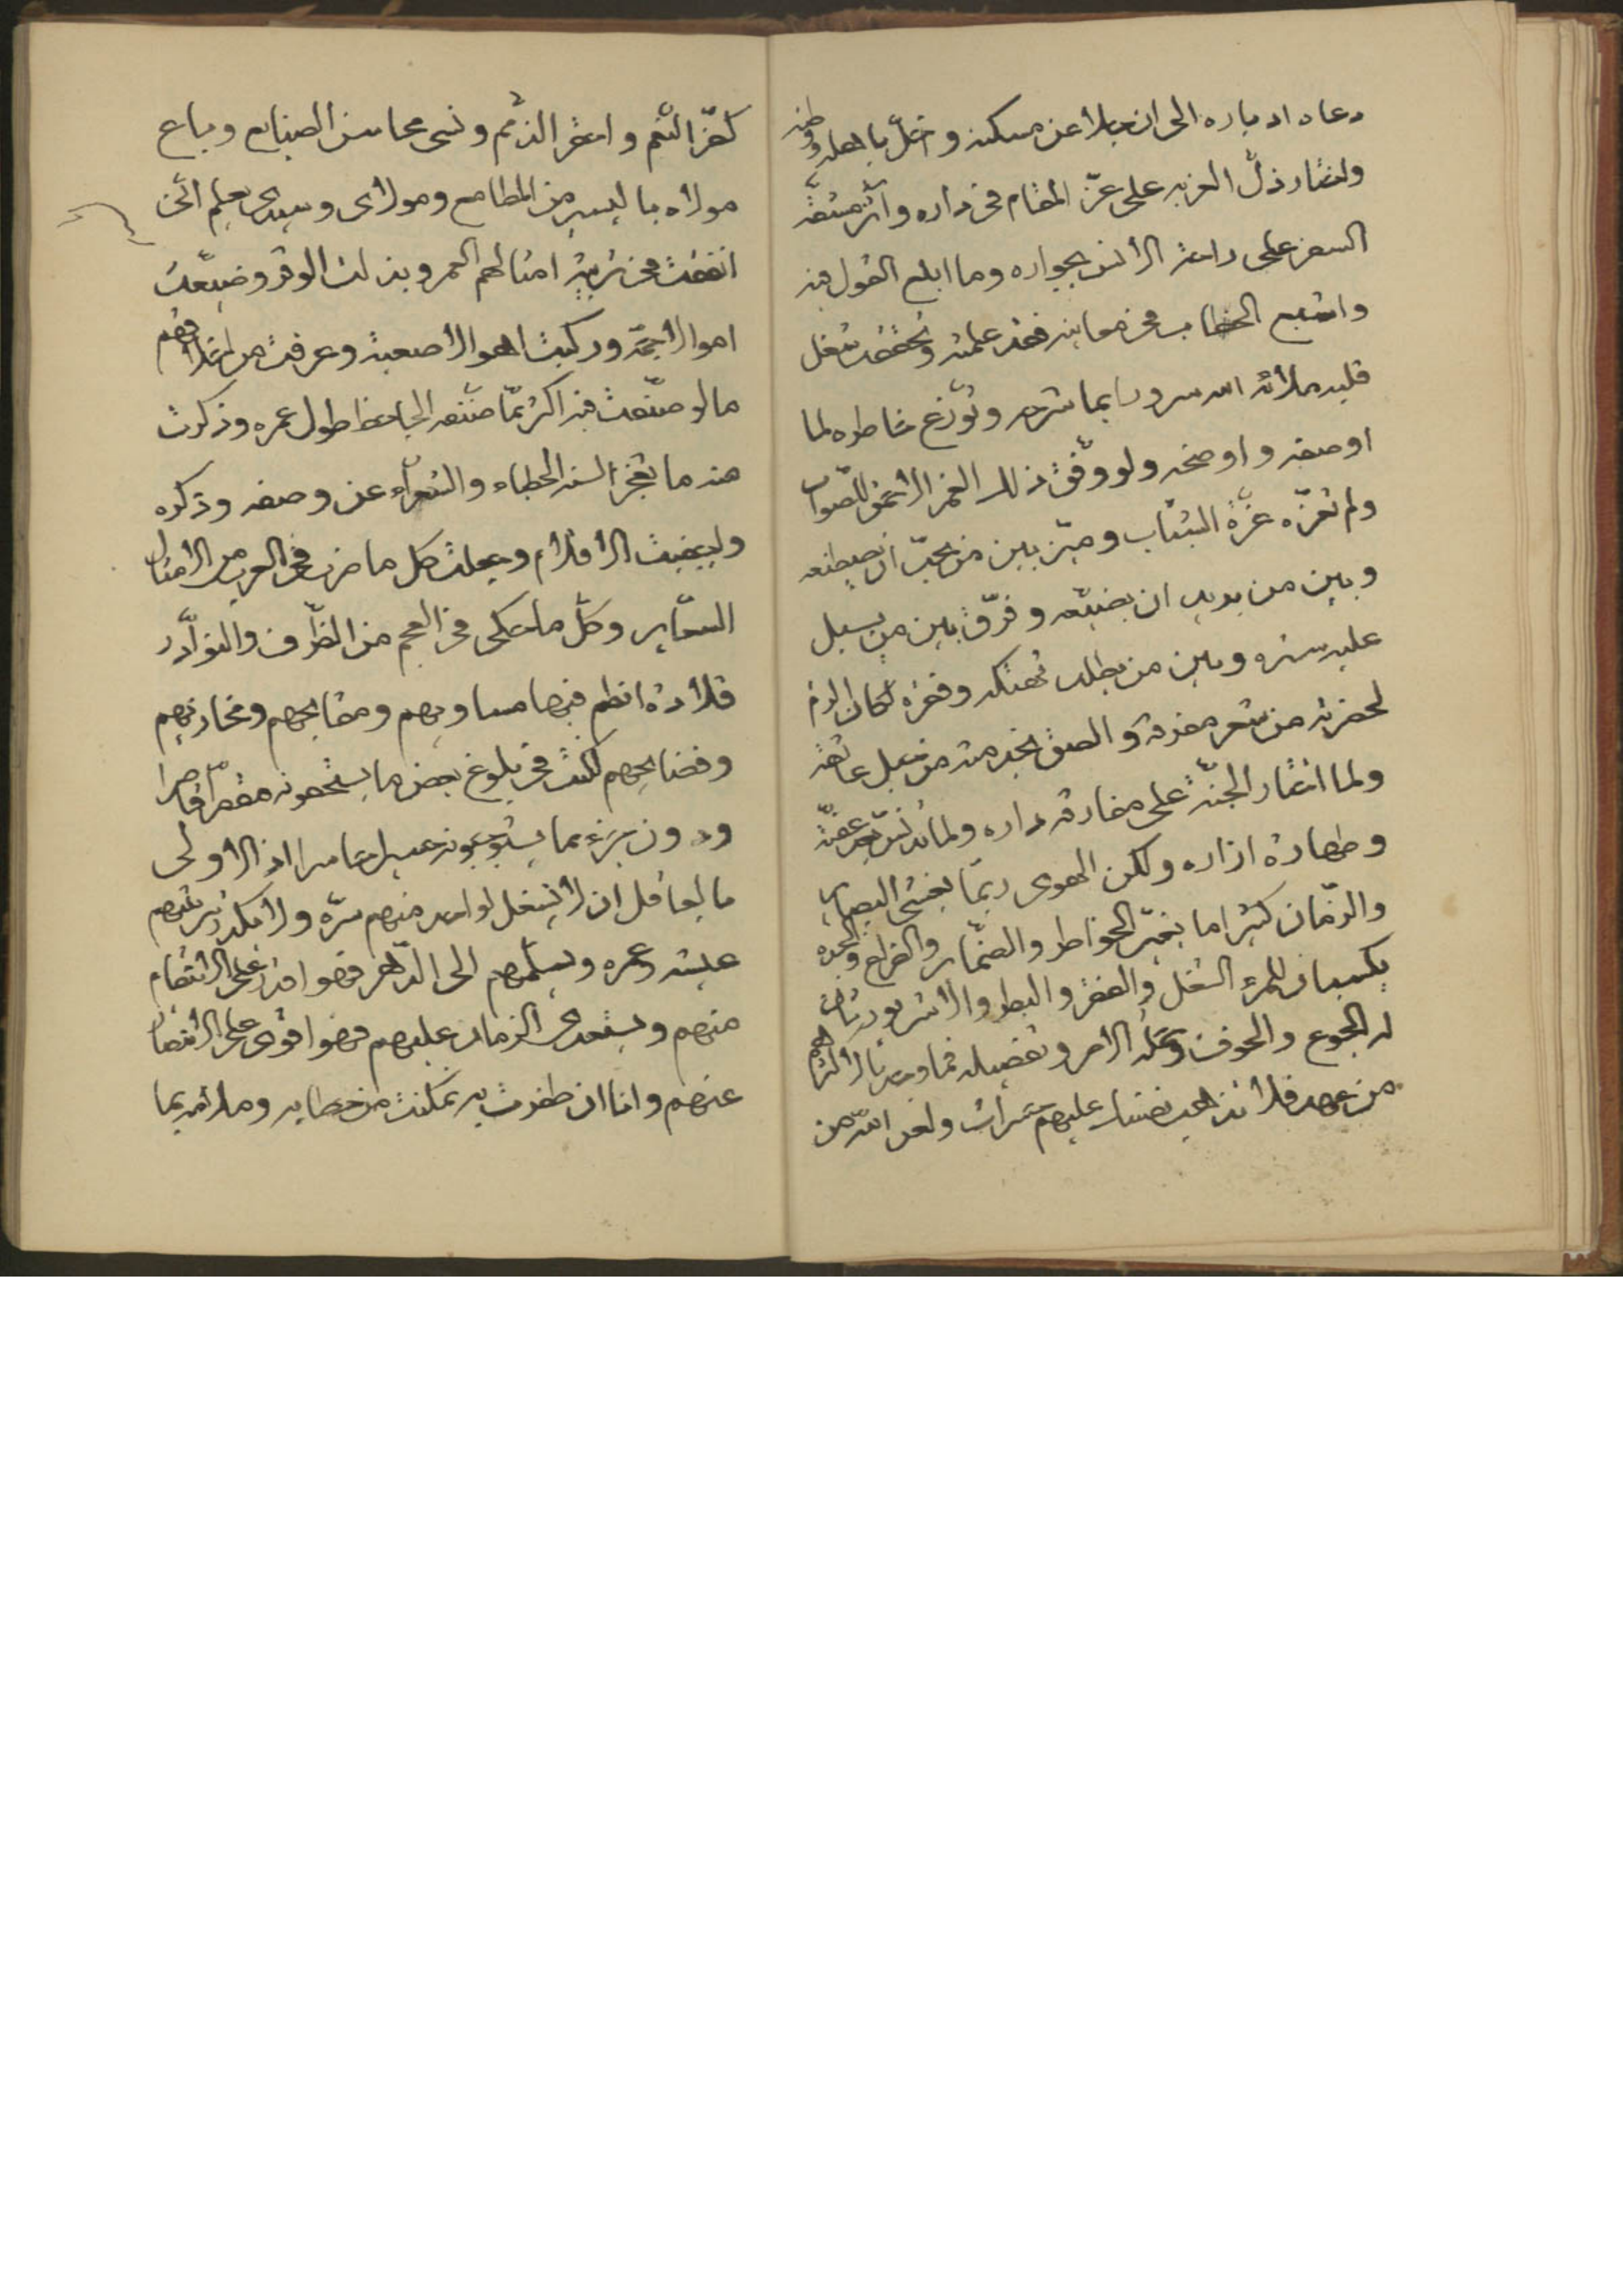 دعاه ادباره الى ان جلا عن مسكنه واخلّ باهله ووطنه
واختار ذلّ الغربه على عزّ المقام فى داره وآثر مشقّة
السفر على راحة الانس بجواره وما ابلغ القول فيه
واشبع الخطاب فى معانيه فقد علمت وتحققت شغل
قلبه ملأته الله سرورا بما شرحه وتوزّع خاطره لما
اوصفه واوضحه ولو وفّق ذلك الغمر الاحمق للصّواب
ولم تغرّه غرّة الشباب وميّز بين من يحبّ ان يصطنعه
وبين من يريد ان يضيّعه وفرّق بين من يسبل
عليه ستره وبين من يطلب تهتكه وفقره لكان الزم
لحضرته من شعر مفرقه والصق بخدمته من حبل عاتقه
ولما اختار الجنّة على مفارقة داره ولما تدنّس بعد عفّته
وطهارة ازاره ولكن الهوى ربّما يغشى البصاير
والزمان كثيرا ما يغيّر الخواطر والضمّاير والفراغ والجده
يكسبان للمرء الشغل والفقر والبطر والاشر يورثان
له الجوع والخوف وجملة الامر وتفصيله فما وجدنا لاكثرهم
من عهد فلا تذهب نفسك عليهم حسرات ولعن الله من
كفر النّعم واخفر الذّمم ونسى محاسن الصنايع وباع
مولاه باليسير من المطامع ومولاى وسيدى يعلم انّى
انفقت فى تربية امثالهم العمر وبذلت الوفر وضيّعت
اموالا جمّة وركبت اهوالا صعبة وعرفت من اخلاقهم
ما لو صنّفت فيه اكثر ممّا صنّفه الجاحظ طول عمره وذكرت
منه ما يعجز السنة الخطباء والشعرآء عن وصفه وذكره
ولبيضت الاقلام وجعلت كل ما ضرب فى العرب من الامثال
السّاير وكلّ ما حكى فى العجم من الظّراف والنوآدر
قلادة انظم فيها مساويهم ومقابحهم ومخازيهم
وفضايحهم لكنت فى بلوغ بعض ما يستحقونه مقصّرا قاصرا
ودون جزء مما يستوجبونه حسيرا خاسرا اذ الاولى
بالعاقل ان لا يشغل لواحد منهم سرّه ولا يكدّر بتربيتهم
عيشه وعمره ويسلّمهم الى الدّهر فهو اقدر على الانتقام
منهم ويستعدى الزمان عليهم فهو اقوى على الانتصار
عنهم وانا ان ظفرت به تمكنت من خطابه وملأته بما